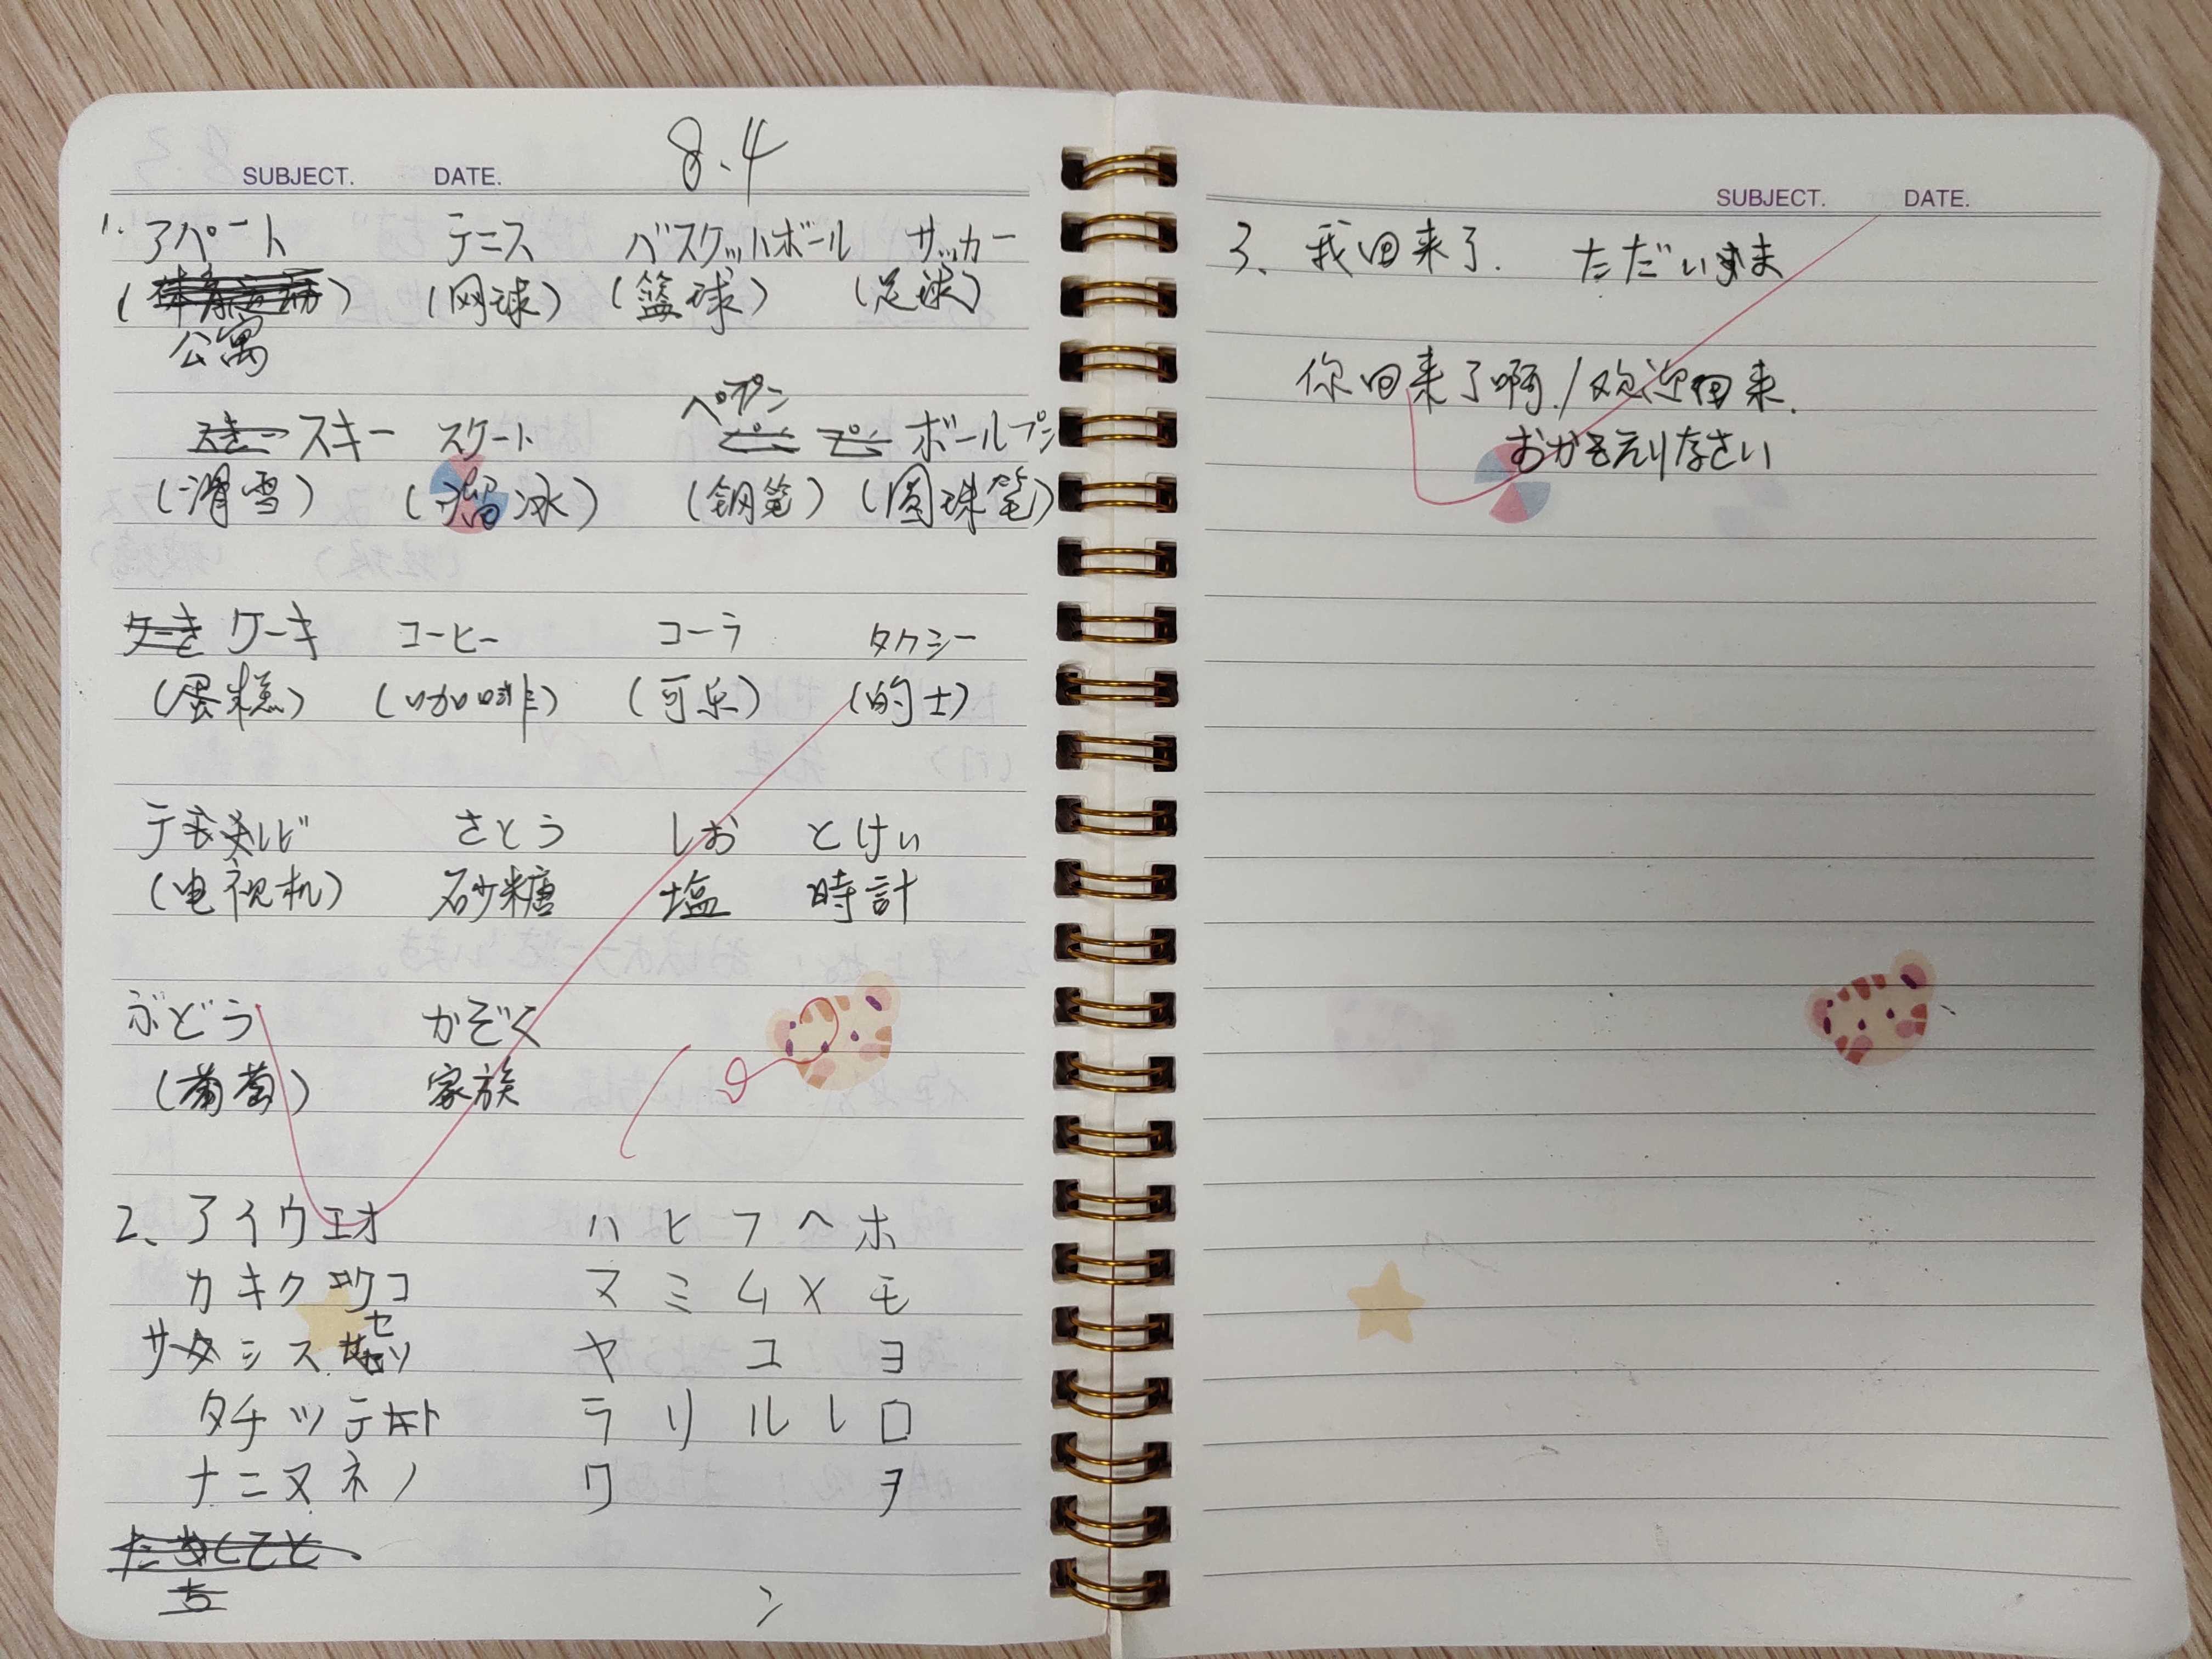 SUBJECT. DATE. 8.4
1. アパート テニス バスケットボール サッカー
( ) (网球) (篮球) (足球)
公寓
ペプン
スキー スケート ボールプン
(滑雪) (溜冰) (钢笔) (圆珠笔)
ケーキ コーヒー コーラ タクシー
(蛋糕) (咖啡) (可乐) (的士)
テレビ さとう しお とけい
(电视机) 砂糖 塩 時計
ぶどう かぞく
(葡萄) 家族
2、アイウエオ ハヒフヘホ
カキクケコ マミムメモ
セ
サシスソ ヤユヨ
タチツテト ラリルレロ
ナニヌネノ ワヲ
ン
SUBJECT. DATE.
3、我回来了. ただいま
你回来了啊./欢迎回来.
おかえりなさい